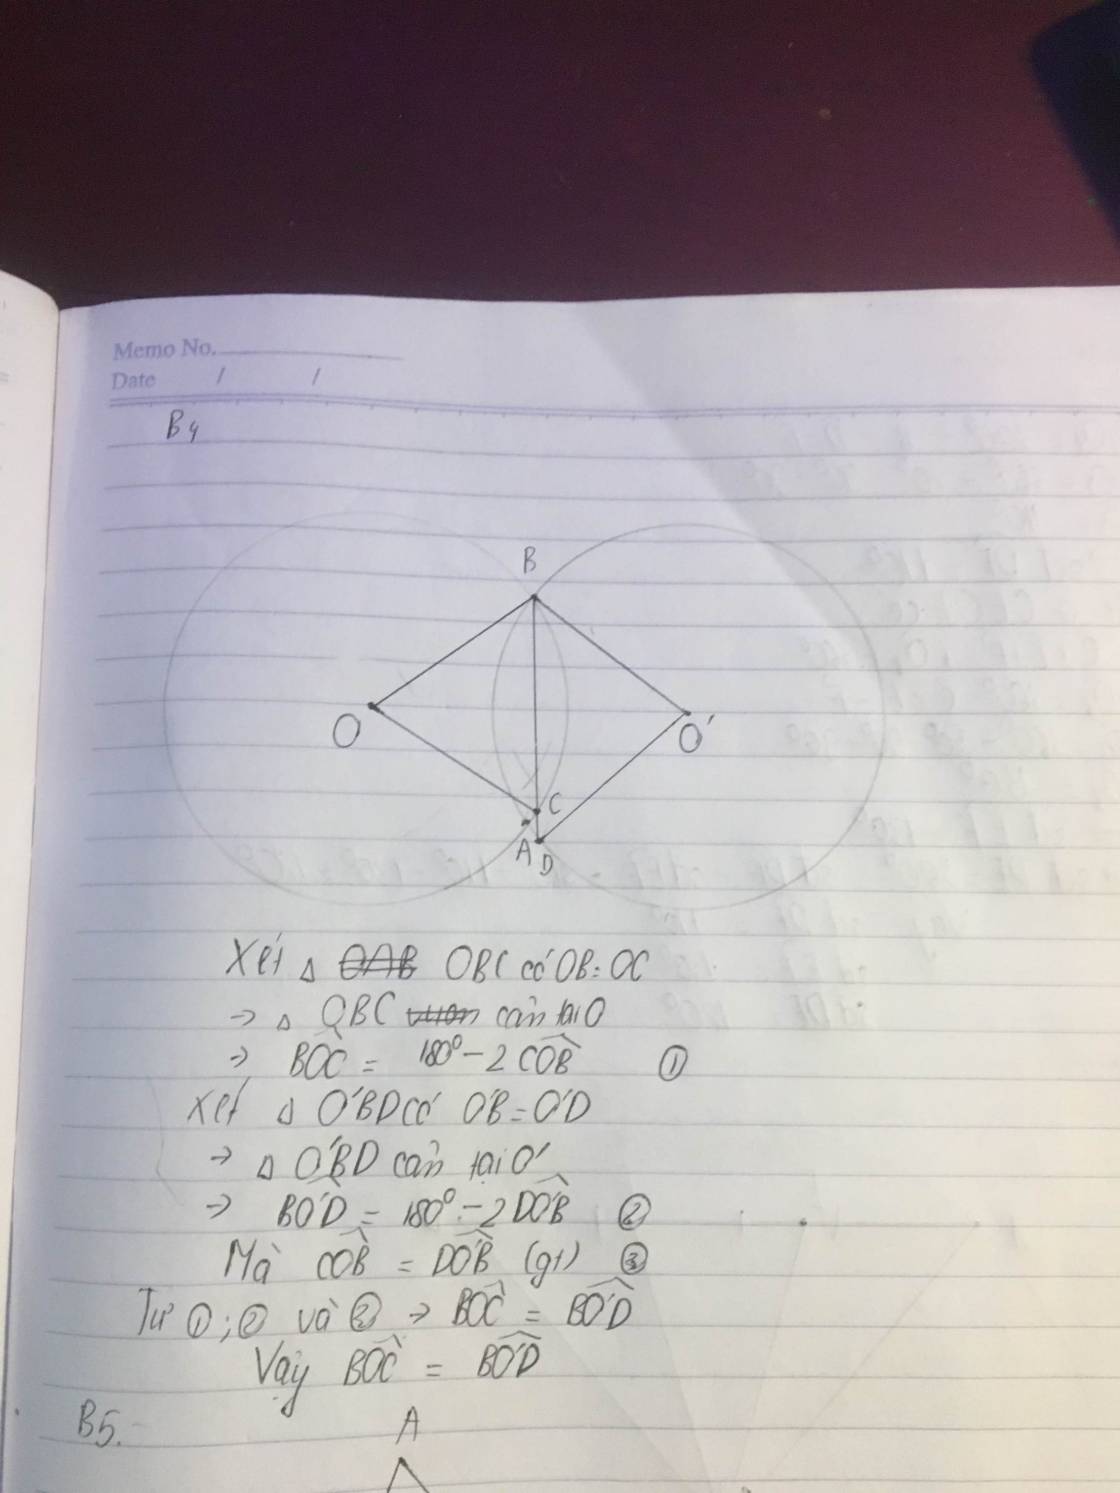 Memo No.
Date / /
B4
B
O
O'
C
A D
Xét Δ OAB OBC có OB = OC
→ Δ OBC vuôn cân tại O
→ BOC = 180° - 2 COB ①
Xét Δ O'BD có O'B = O'D
→ Δ O'BD cân tại O'
→ BO'D = 180° - 2 DO'B ②
Mà COB = DO'B (gt) ③
Từ ①; ② và ③ → BOC = BO'D
Vậy BOC = BO'D
B5.
A